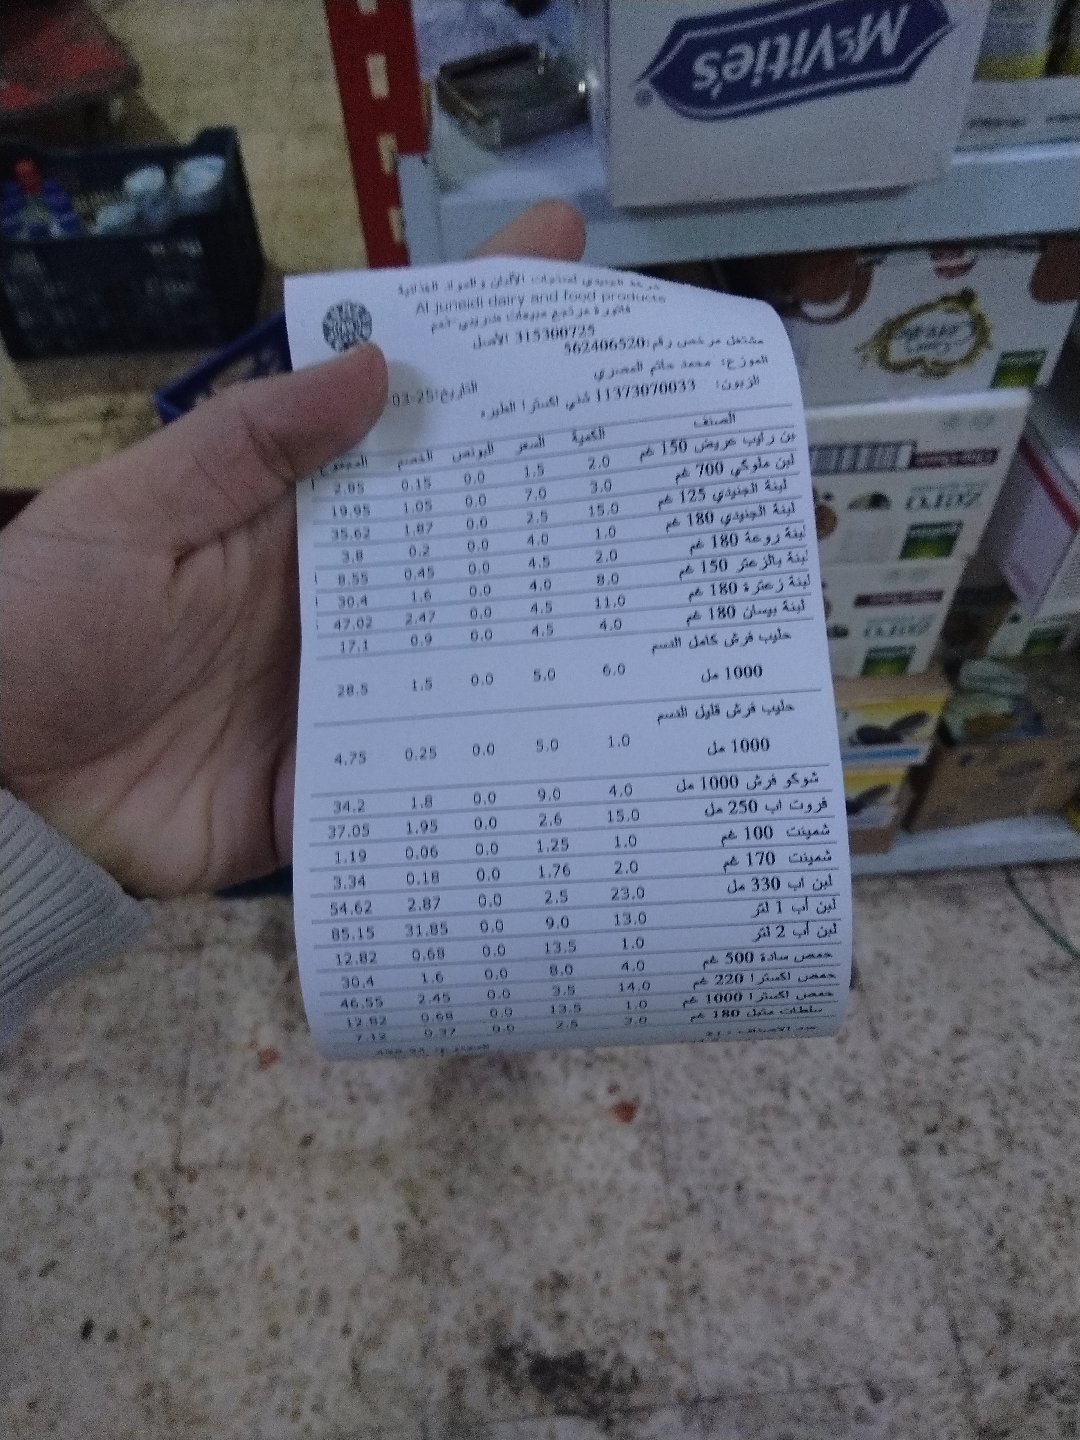 McVitie's
شركة الجنيدي لمنتجات الألبان و المواد الغذائية
Al juneidi dairy and food products
فاتورة مرتجع مبيعات ضريبي-نعم
315300725 الأصل
مشتغل مرخص رقم:562406520
الموزع: محمد حاتم المصري
التاريخ:25-03
الزبون: 11373070033 شني اكسترا الطيره
الصنف الكمية السعر البونص الخصم المجموع
بن رايب عريض 150 غم 2.0 1.5 0.0 0.15 2.85
لبن ملوكي 700 غم 3.0 7.0 0.0 1.05 19.95
لبنة الجنيدي 125 غم 15.0 2.5 0.0 1.87 35.62
لبنة الجنيدي 180 غم 1.0 4.0 0.0 0.2 3.8
لبنة روعة 180 غم 2.0 4.5 0.0 0.45 8.55
لبنة بالزعتر 150 غم 8.0 4.0 0.0 1.6 30.4
لبنة زعترة 180 غم 11.0 4.5 0.0 2.47 47.02
لبنة بيسان 180 غم 4.0 4.5 0.0 0.9 17.1
حليب فرش كامل الدسم
1000 مل 6.0 5.0 0.0 1.5 28.5
حليب فرش قليل الدسم
1000 مل 1.0 5.0 0.0 0.25 4.75
شوكو فرش 1000 مل 4.0 9.0 0.0 1.8 34.2
فروت اب 250 مل 15.0 2.6 0.0 1.95 37.05
شمينت 100 غم 1.0 1.25 0.0 0.06 1.19
شمينت 170 غم 2.0 1.76 0.0 0.18 3.34
لبن اب 330 مل 23.0 2.5 0.0 2.87 54.62
لبن أب 1 لتر 13.0 9.0 0.0 31.85 85.15
لبن أب 2 لتر 1.0 13.5 0.0 0.68 12.82
حمص سادة 500 غم 4.0 8.0 0.0 1.6 30.4
حمص اكسترا 220 غم 14.0 3.5 0.0 2.45 46.55
حمص اكسترا 1000 غم 1.0 13.5 0.0 0.68 12.82
سلطات متبل 180 غم 3.0 2.5 0.0 0.37 7.12